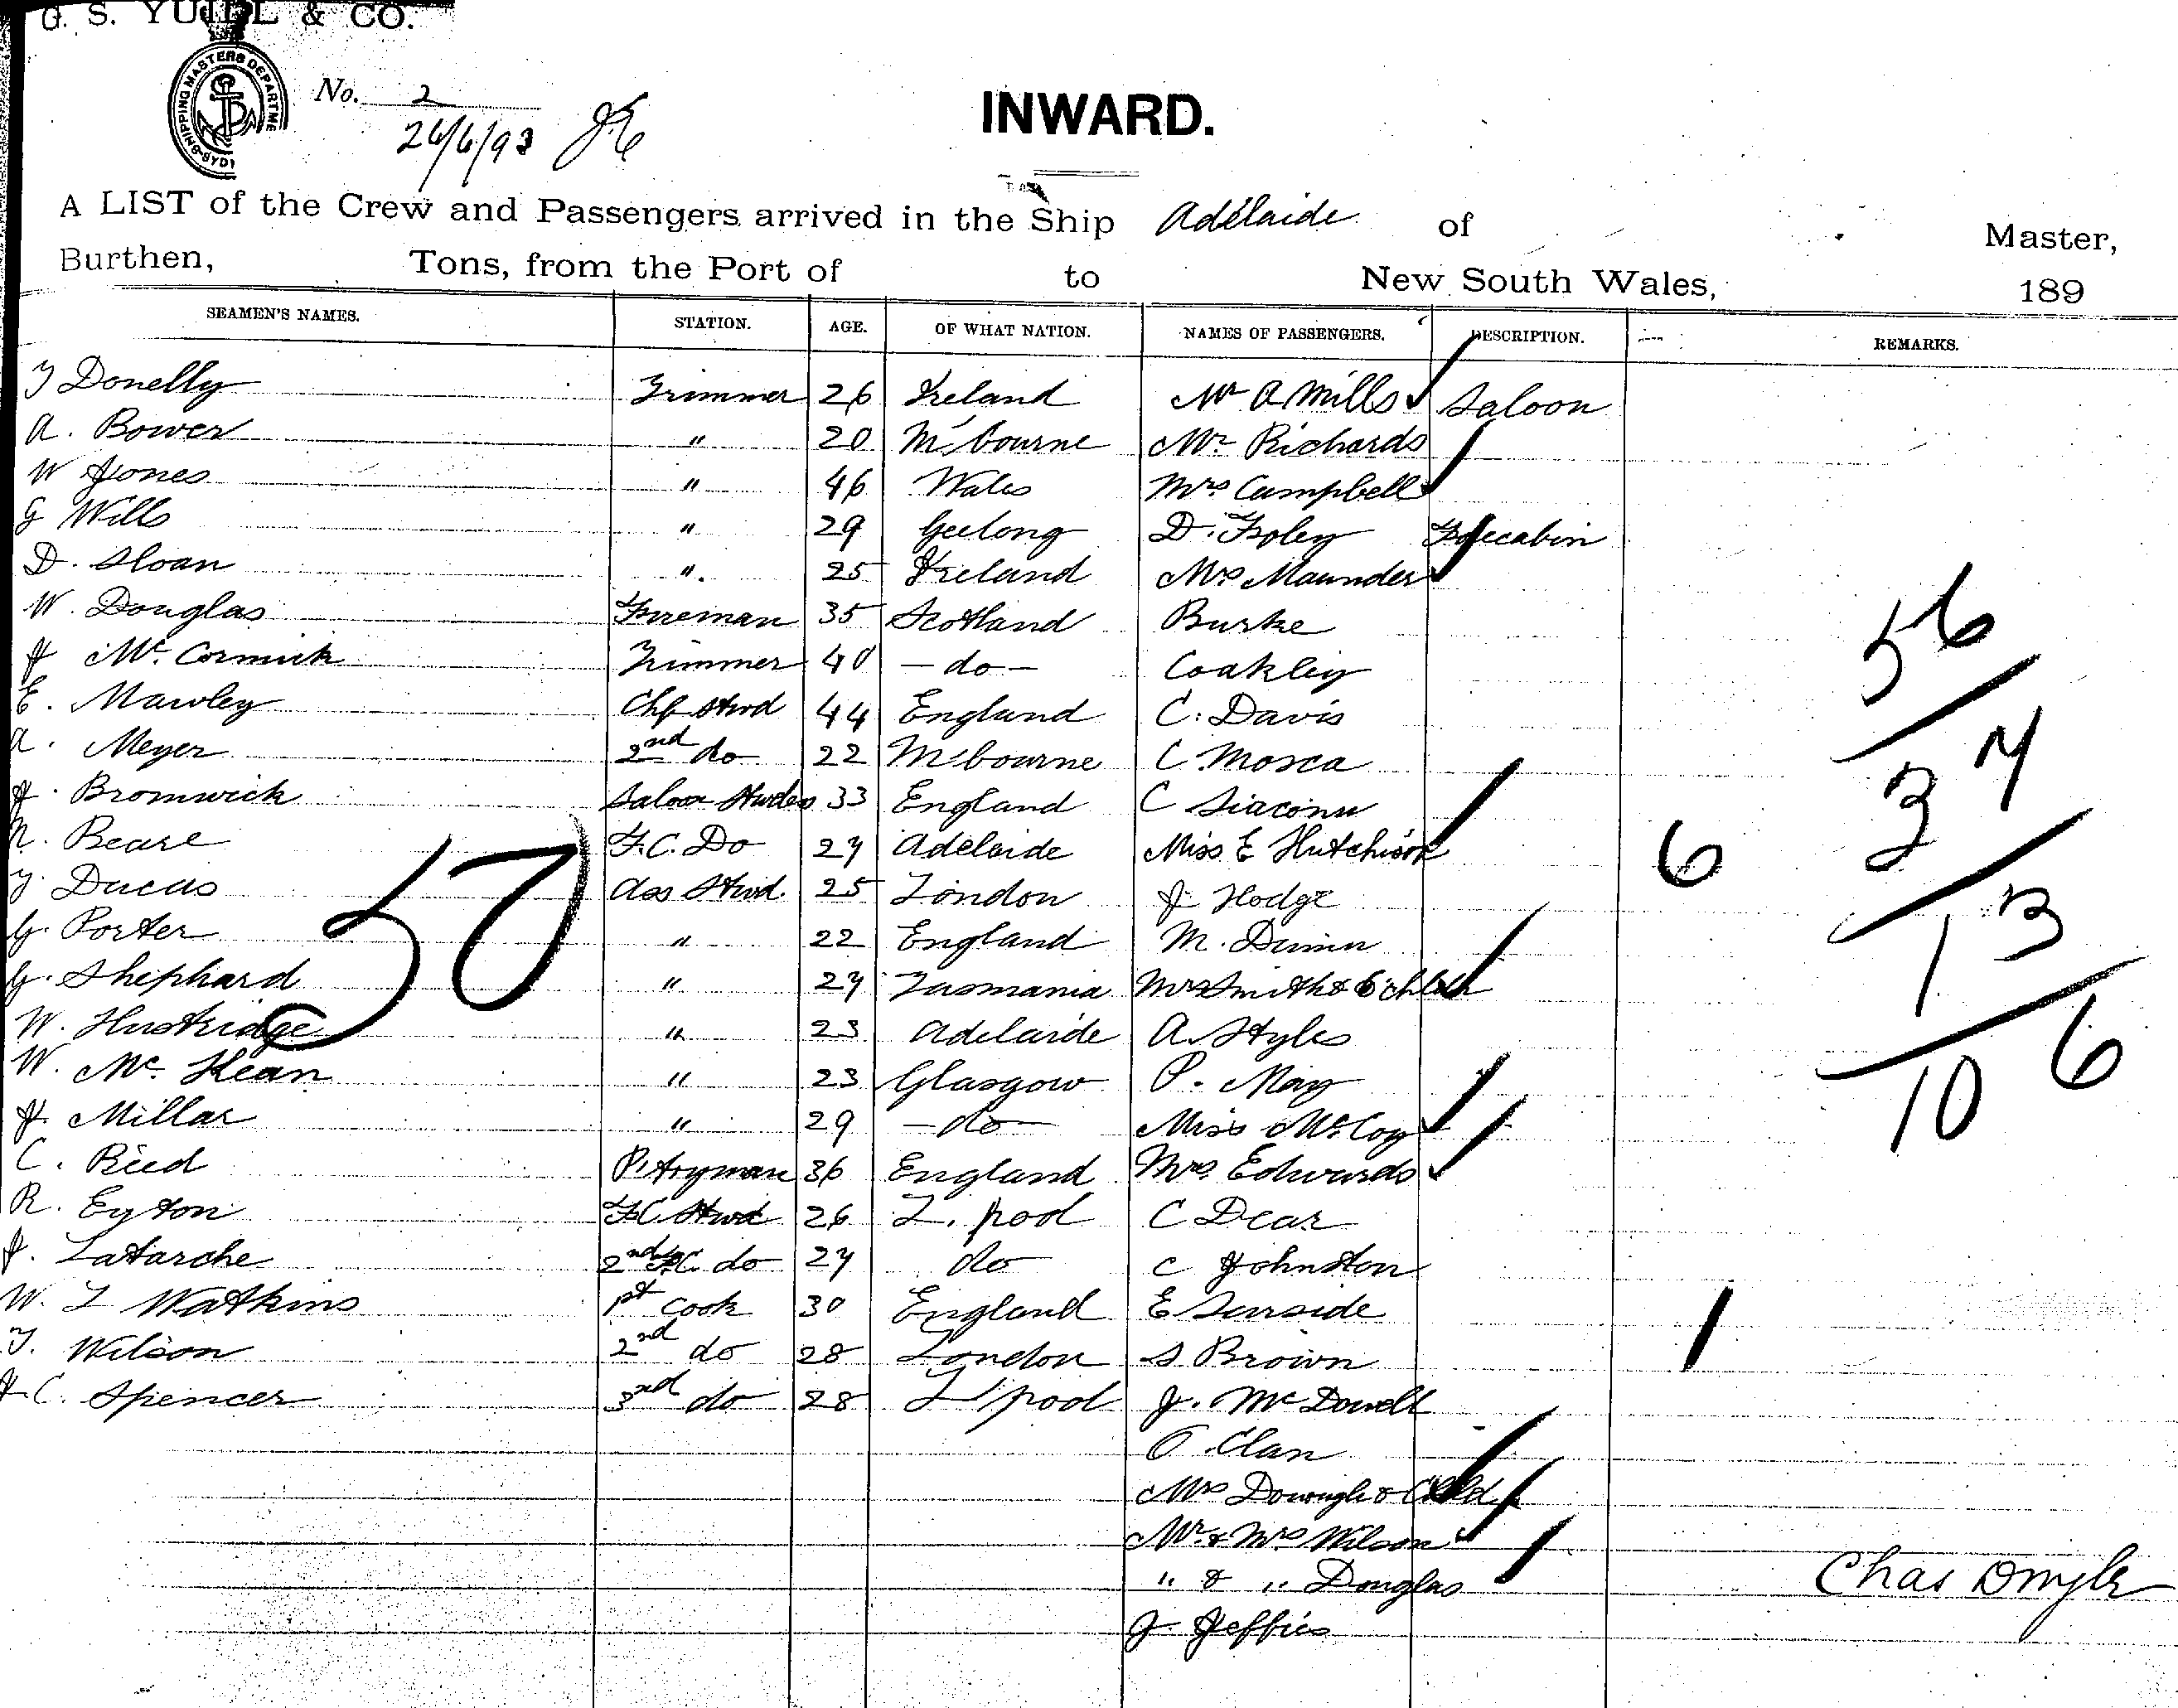 G. S. YUILL & CO.
SHIPPING MASTERS DEPARTME SYD
No. 2
26/6/93
INWARD.
A LIST of the Crew and Passengers arrived in the Ship Adelaide of Master,
Burthen, Tons, from the Port of to New South Wales, 189
SEAMEN'S NAMES. STATION. AGE. OF WHAT NATION. NAMES OF PASSENGERS. DESCRIPTION. REMARKS.
J Donelly Trimmer 26 Ireland Mr A Mills Saloon
A. Bower " 20 M'bourne Mr Richards
W Jones " 46 Wales Mrs Campbell
G Wills " 29 Geelong D. Foley Forecabin
D. Sloan " 25 Ireland Mrs Maunder
W. Douglas Fireman 35 Scotland Burke
J McCormick Trimmer 40 - do - Coakley
E. Mawley Chf Stwd 44 England C. Davis
A. Meyer 2nd do 22 M'bourne C. Mosca
J. Bromwich Saloon Stwdes 33 England C
N. Beare F.C. Do 27 Adelaide Miss E Hutchison
J. Ducas Ass Stwd. 25 London J Hodge
G. Porter " 22 England M.
G. Shephard " 27 Tasmania Mrs Smith & 6 chld
W. " 23 Adelaide A. Styles
W. McKean " 23 Glasgow P. May
J. Millar " 29 - do - Miss McCoy
C. Reed P. tryman 36 England Mrs Edwards
R. Eyton F.C. Stwd 26 L. pool C Dear
J. Latarche 2nd F.C. do 27 do C Johnston
W. L Watkins 1st Cook 30 England E
T. Wilson 2nd do 28 London S Brown
C. Spencer 3rd do 28 L'pool J. McDowell
Clan
Mrs & Child
Mr & Mrs Wilson
" & " Douglas
J Jeffries
50
6
1
56
37
13
106
Chas